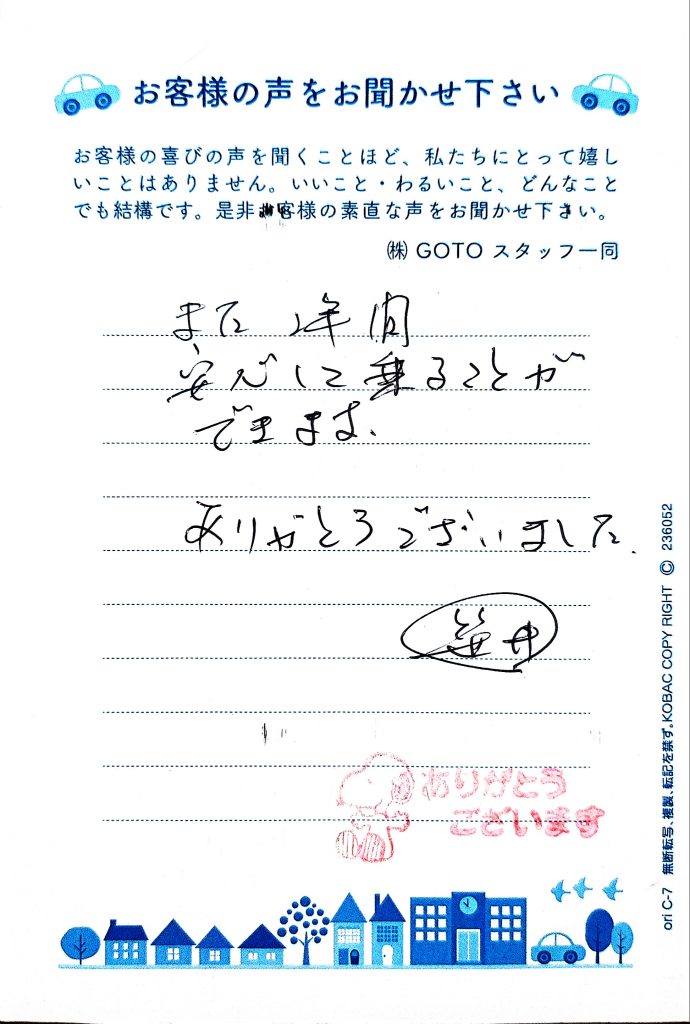 お客様の声をお聞かせ下さい
お客様の喜びの声を聞くことほど、私たちにとって嬉し
いことはありません。いいこと・わるいこと、どんなこと
でも結構です。是非お客様の素直な声をお聞かせ下さい。
㈱ GOTO スタッフ一同
また 2年間
安心して乗ることが
できます.
ありがとうございました.
笹井
ありがとう
ございます
ori C-7 無断転写、複製、転記を禁ず。KOBAC COPY RIGHT © 236052